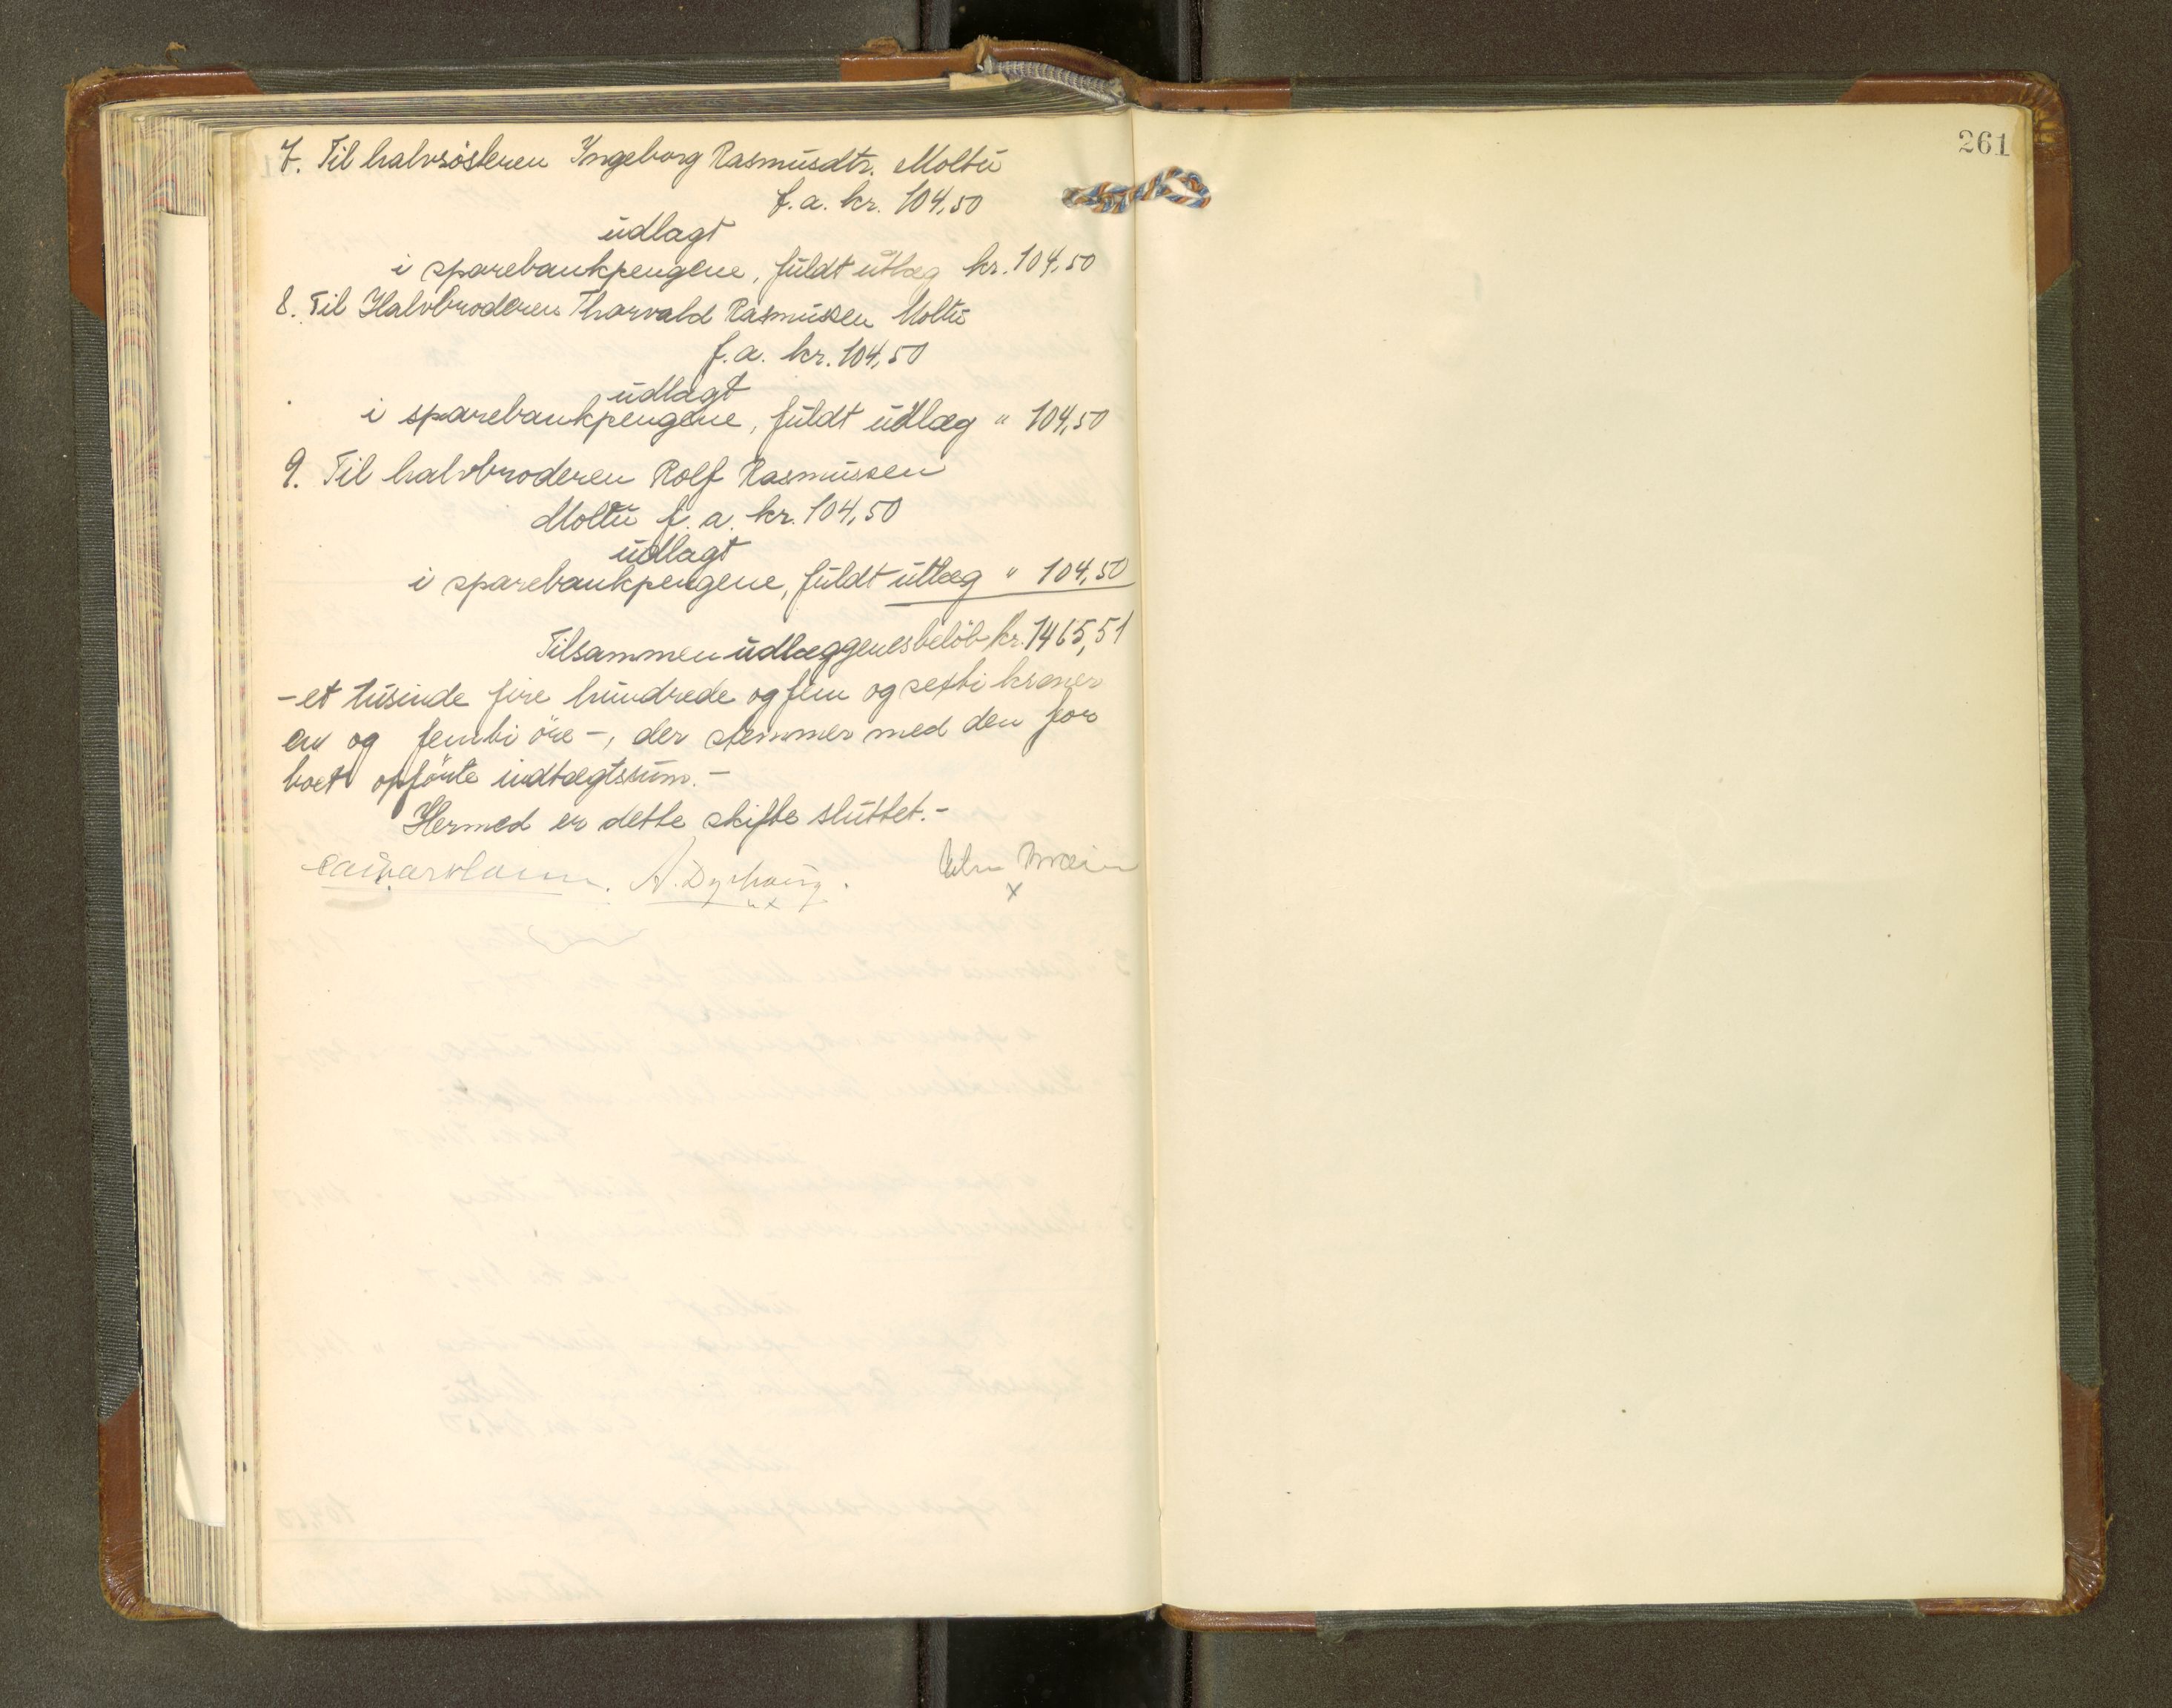 7. Til halvsøsteren Ingeborg Rasmusdtr. Moltu
f.a. kr. 104,50
udlagt
i sparebankpengene, fuldt utlæg kr. 104,50
8. Til Halvbroderen Thorvald Rasmussen Moltu
f.a. kr. 104,50
udlagt
i sparebankpengene, fuldt udlæg " 104,50
9. Til halvbroderen Rolf Rasmussen
Moltu f.a. kr. 104,50
udlagt
i sparebankpengene, fuldt utlæg " 104,50
Tilsammen udlæggenes beløb kr. 1465,51
- et tusinde fire hundrede og fem og sexti kroner
en og femti øre -, der stemmer med den for
boet opførte indtægtssum. -
Hermed er dette skifte sluttet. -
261